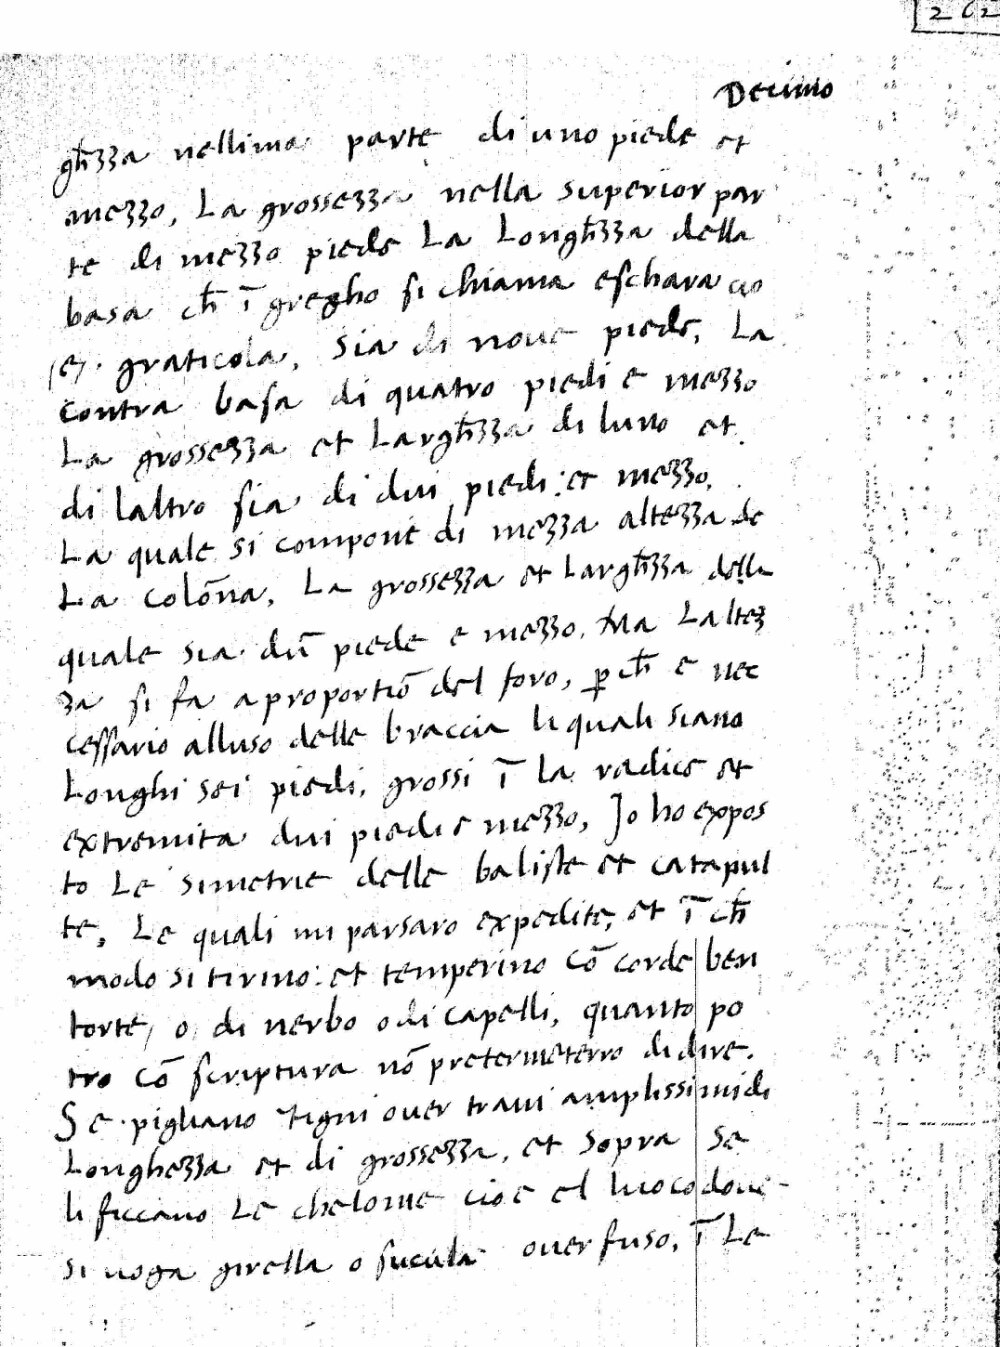 262
Decimo
gh̄zza nellima parte di uno piede et
mezzo, La grossezza nella superior par
te di mezzo piede La Longh̄zza della
basa ch̄ ī gregho si chiama eschara cio
(e). graticola, sia di noue piede, La
contra basa di quatro piedi e mezzo
La grossezza et Largh̄zza di luno et
di laltro sia di dui piedi: et mezzo,
La quale si compone di mezza altezza de
La colōna, La grossezza et Largh̄zza della
quale sia dū piede e mezzo. Ma Laltez
za si fa a proportiō del foro, p̱ ch̄ e nec
cessario alluso delle braccia li quali siano
Longhi sei piedi, grossi ī la radice et
extremita dui piedi e mezzo, Jo ho expos
to Le simetrie delle baliste et catapul
te, Le quali mi parsaro expedite, et ī ch̄
modo si tirino: et temperino cō corde ben
torte, o di nerbo o di capelli, quanto po
tro cō scriptura nō pretermeterro di dire.
Se pigliano tigni ouer traui amplissimi di
Longhezza et di grossezza, et sopra se
li ficcano Le chelome cio e el luoco doue
si uoga girella o sucula ouer fuso, ī Le